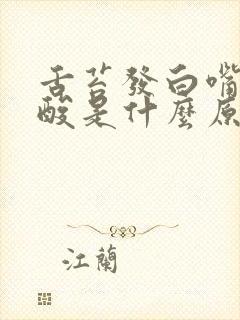 舌苔發白嘴
酸是什麼原
江蘭